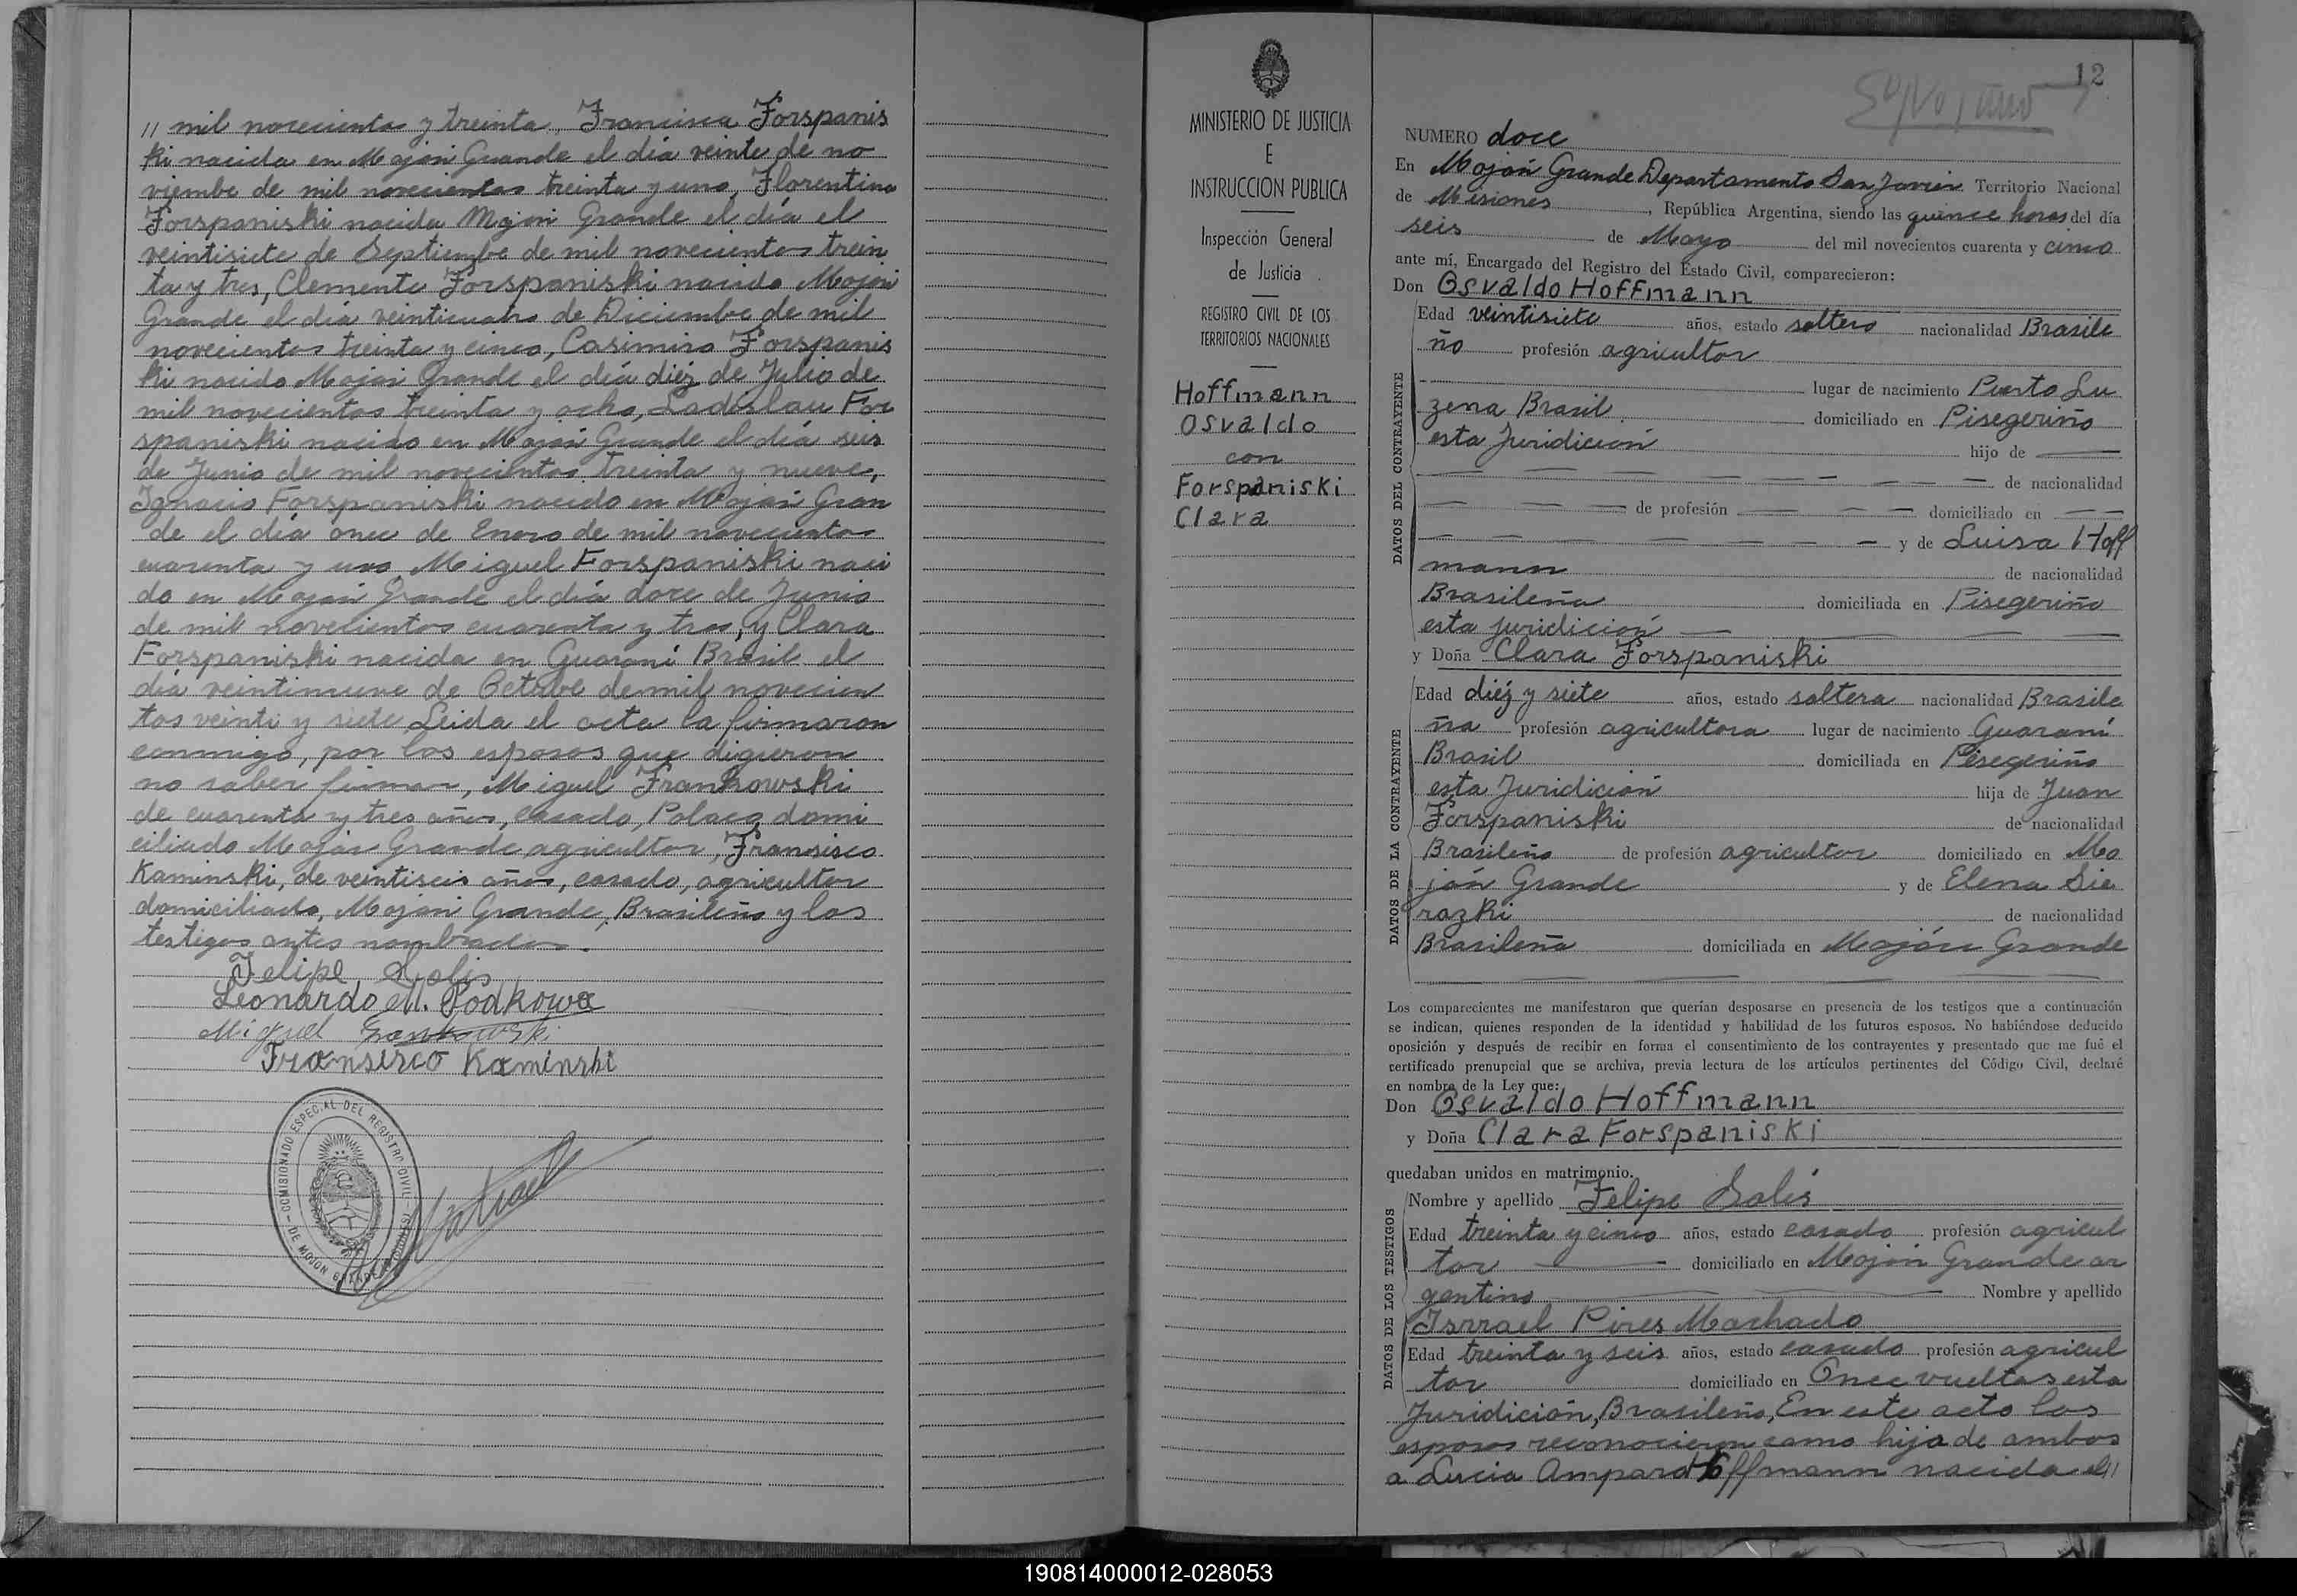 // mil novecientos y treinta, Francisca Forspanis
ki nacida en Mojón Grande el día veinte de no
viembe de mil novecientos treinta y uno, Florentina
Forspaniski nacida Mojón Grande el día el
veintisiete de Septiembe de mil novecientos trein
ta y tres, Clemente Forspaniski nacido Mojón
Grande el día veinticuatro de Diciembe de mil
novecientos treinta y cinco, Casimiro Forspanis
ki nacido Mojón Grande el día diéz de Julio de
mil novecientos treinta y ocho, Ladislau For
spaniski nacido en Mojón Grande el día seis
de Junio de mil novecientos treinta y nueve,
Ignacio Forspaniski nacido en Mojón Gran
de el día once de Enero de mil novecientos
cuarenta y uno Miguel Forspaniski naci
do en Mojón Grande el día doce de Junio
de mil novecientos cuarenta y tres, y Clara
Forspaniski nacida en Guaraní Brasil el
día veintinueve de Octubre de mil novecien
tos veinti y siete Leida el acta la firmaron
conmigo, por los esposos que digieron
no saber firmar, Miguel Frankowski
de cuarenta y tres años, casado, Polaco domi
ciliado Mojón Grande agricultor, Fransisco
Kaminski, de veintiseis años, casado, agricultor
domiciliado, Mojón Grande, Brasileño y los
testigos antes nombrados.
Felipe Solis
Leonardo M. Podkowa
Miguel Frankowski
Fransisco Kaminski
COMISIONADO ESPECIAL DEL REGISTRO CIVIL
DE MOJON GRANDE
MINISTERIO DE JUSTICIA
E
INSTRUCCION PUBLICA
Inspección General
de Justicia
REGISTRO CIVIL DE LOS
TERRITORIOS NACIONALES
Hoffmann
Osvaldo
con
Forspaniski
Clara
12
NUMERO doce
En Mojón Grande Departamento San Javier Territorio Nacional
de Misiones, República Argentina, siendo las quince horas del día
seis de Mayo del mil novecientos cuarenta y cinco
ante mí, Encargado del Registro del Estado Civil, comparecieron:
Don Osvaldo Hoffmann
DATOS DEL CONTRAYENTE
Edad veintisiete años, estado soltero nacionalidad Brasile
ño profesión agricultor
lugar de nacimiento Puerto Lu
zena Brasil domiciliado en Pisegeriño
esta Juridición hijo de
de nacionalidad
de profesión domiciliado en
y de Luisa Hoff
mann de nacionalidad
Brasileña domiciliada en Pisegeriño
esta juridición
y Doña Clara Forspaniski
DATOS DE LA CONTRAYENTE
Edad diéz y siete años, estado soltera nacionalidad Brasile
ña profesión agricultora lugar de nacimiento Guaraní
Brasil domiciliada en Pisegeriño
esta Juridición hija de Juan
Forspaniski de nacionalidad
Brasileño de profesión agricultor domiciliado en Mo
jón Grande y de Elena Sie
razki de nacionalidad
Brasileña domiciliada en Mojón Grande
Los comparecientes me manifestaron que querían desposarse en presencia de los testigos que a continuación
se indican, quienes responden de la identidad y habilidad de los futuros esposos. No habiéndose deducido
oposición y después de recibir en forma el consentimiento de los contrayentes y presentado que me fué el
certificado prenupcial que se archiva, previa lectura de los artículos pertinentes del Código Civil, declaré
en nombre de la Ley que:
Don Osvaldo Hoffmann
y Doña Clara Forspaniski
quedaban unidos en matrimonio.
DATOS DE LOS TESTIGOS
Nombre y apellido Felipe Solis
Edad treinta y cinco años, estado casado profesión agricul
tor domiciliado en Mojón Grande ar
gentino Nombre y apellido
Isrrael Pires Machado
Edad treinta y seis años, estado casado profesión agricul
tor domiciliado en Once vueltas esta
Juridición, Brasileño, En este acto los
esposos reconocieron como hija de ambos
a Lucia Ampard Hoffmann nacida el//
190814000012-028053